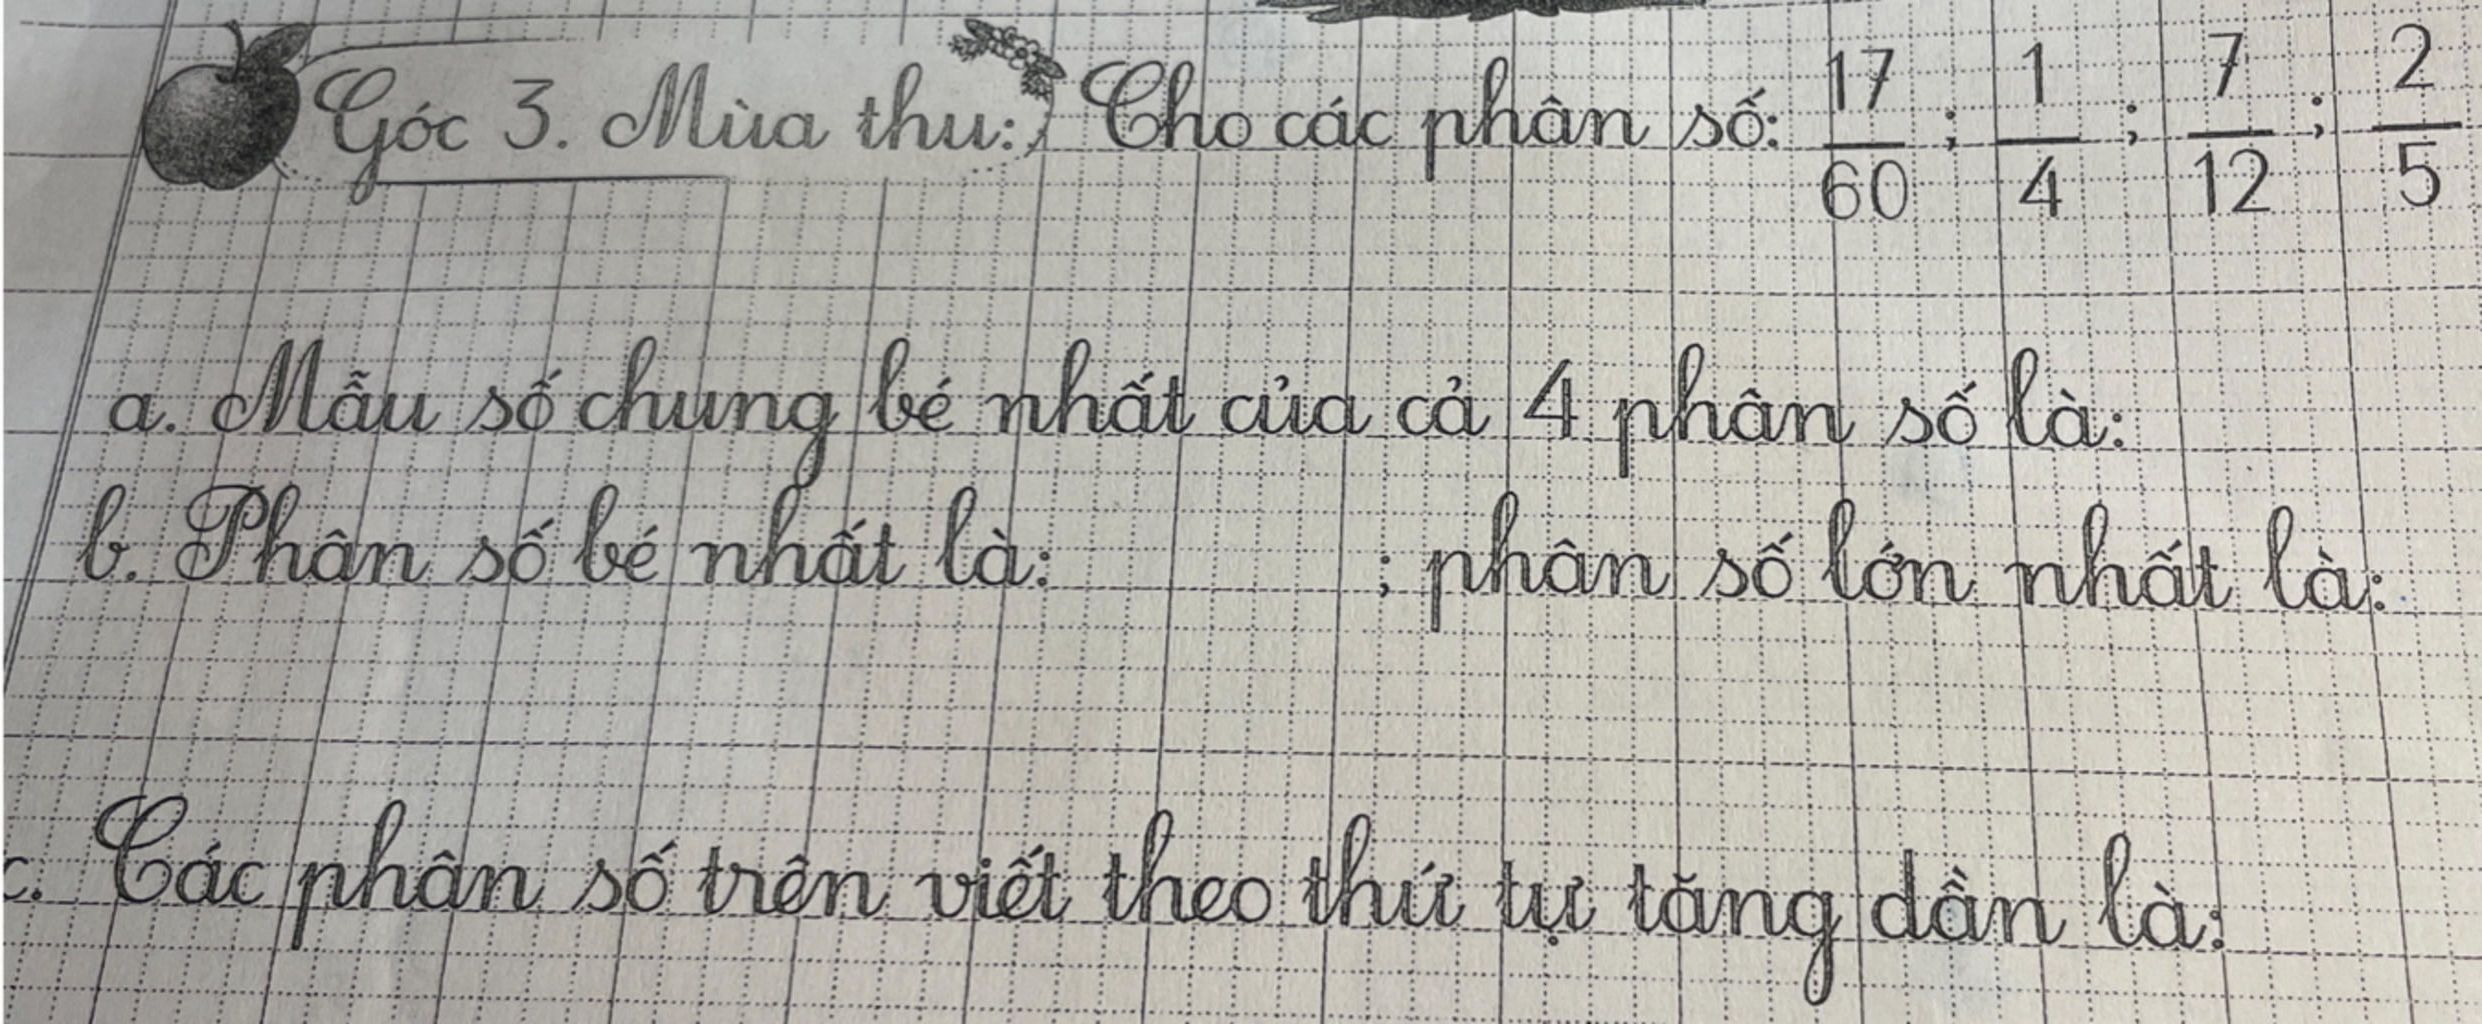 Góc 3. Mùa thu: Cho các phân số: 17/60 ; 1/4 ; 7/12 ; 2/5
a. Mẫu số chung bé nhất của cả 4 phân số là:
b. Phân số bé nhất là: ; phân số lớn nhất là:
c. Các phân số trên viết theo thứ tự tăng dần là: